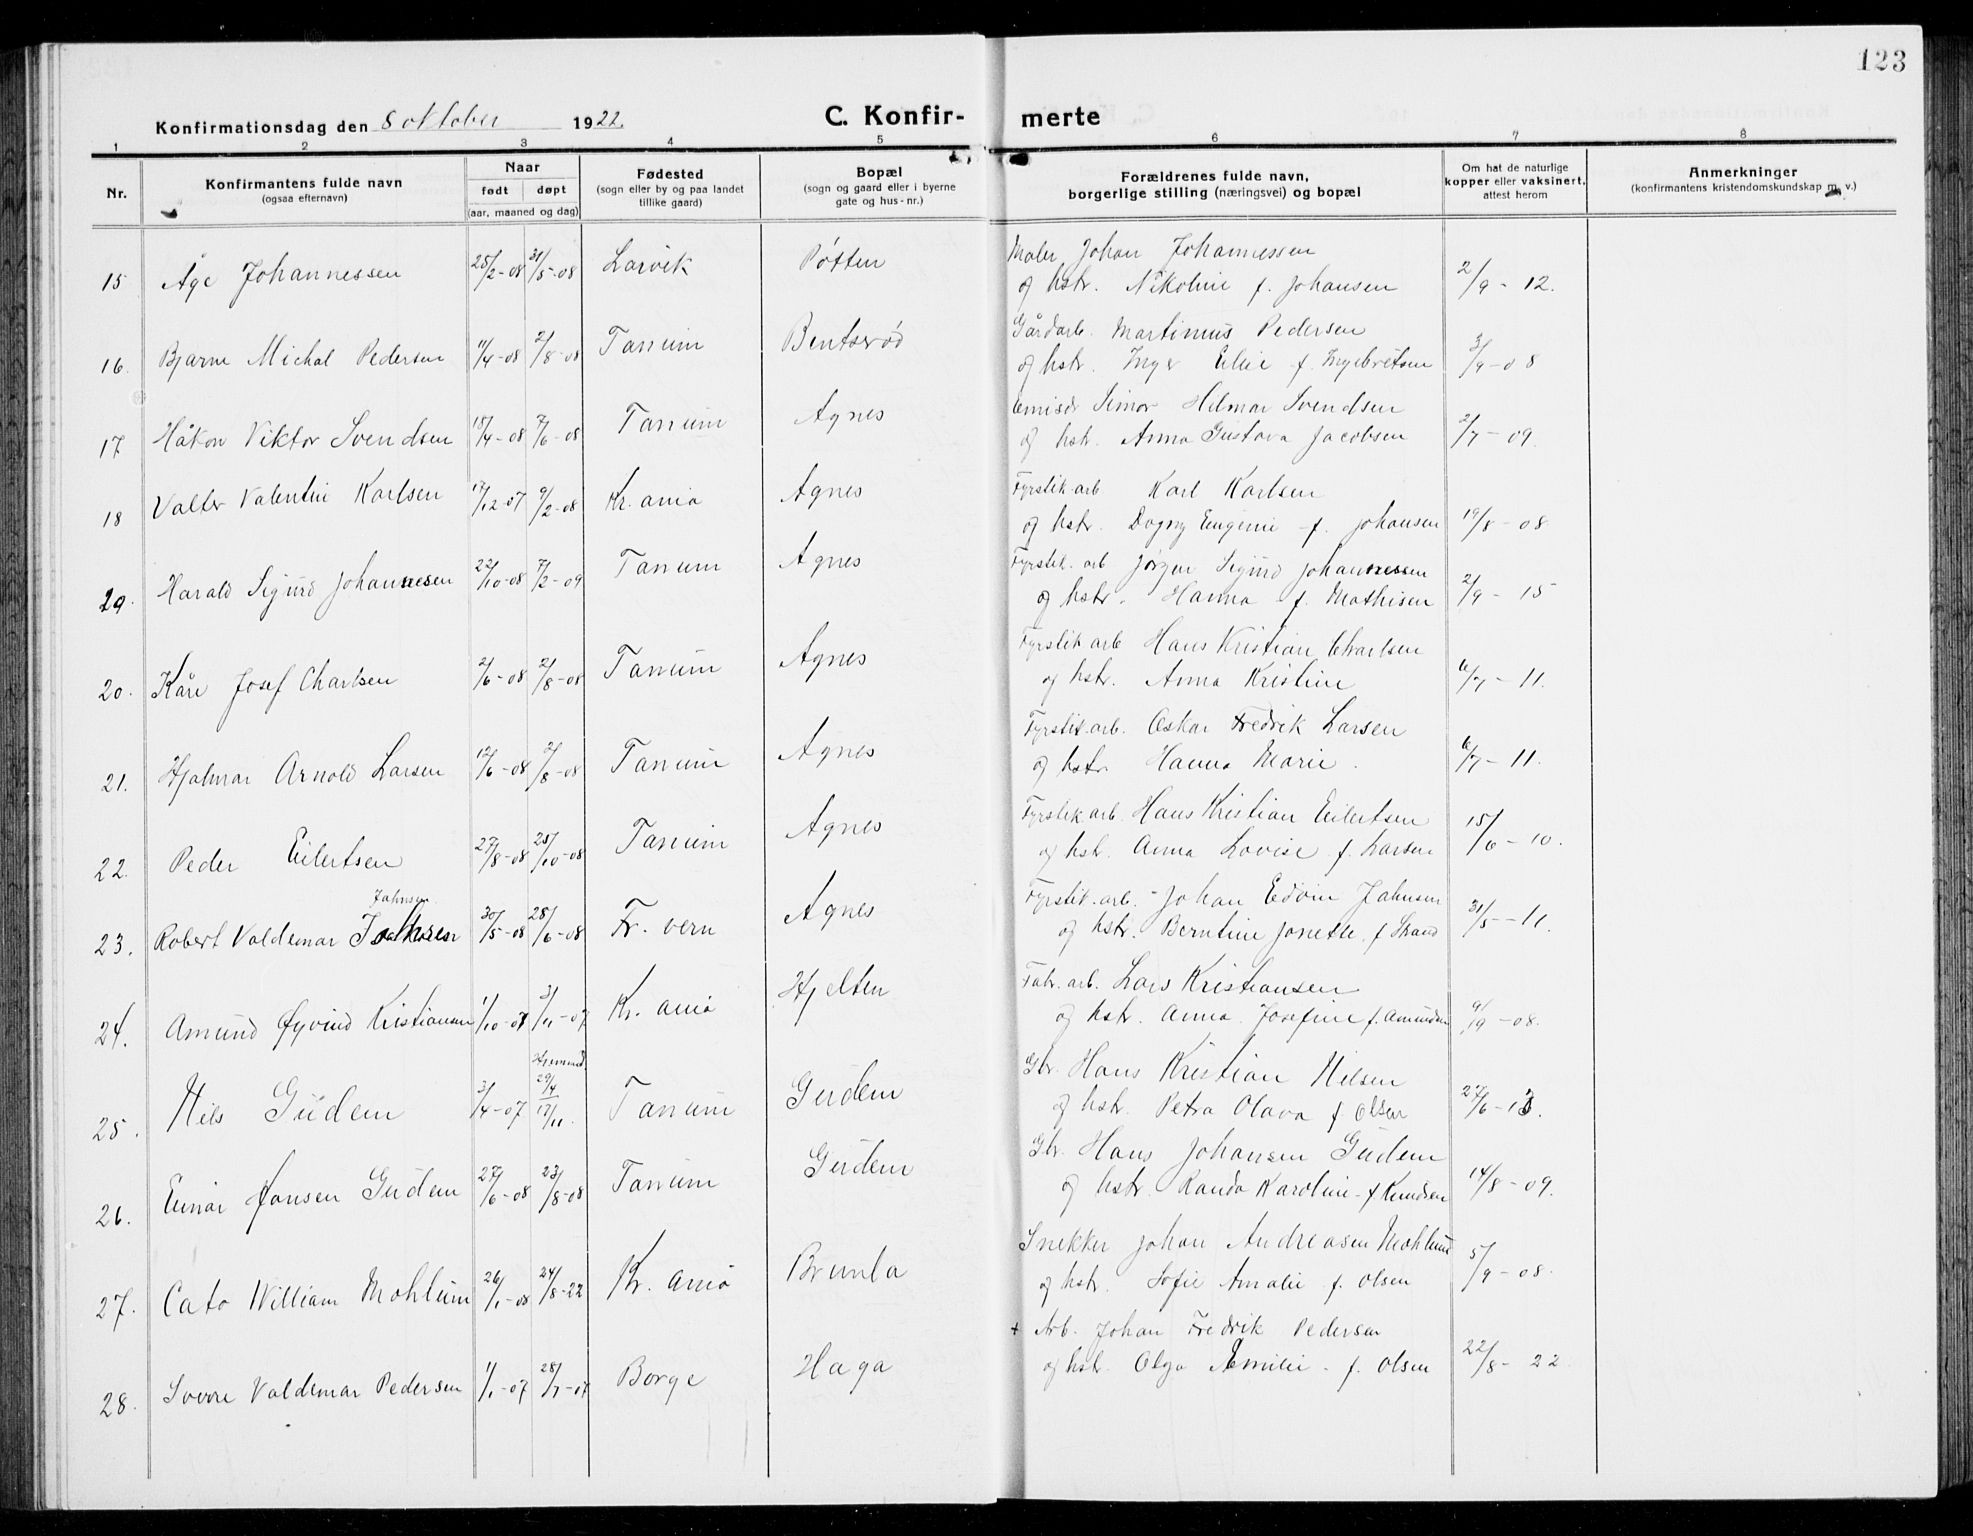 123
Konfirmationsdag den 8 oktober 1922.
C. Konfir- merte
1 2 3 4 5 6 7 8
Nr.
Konfirmantens fulde navn
(ogsaa efternavn)
Naar
født døpt
(aar, maaned og dag)
Fødested
(sogn eller by og paa landet
tillike gaard)
Bopæl
(sogn og gaard eller i byerne
gate og hus-nr.)
Forældrenes fulde navn,
borgerlige stilling (næringsvei) og bopæl
Om hat de naturlige
kopper eller vaksinert,
attest herom
Anmerkninger
(konfirmantens kristendomskundskap m. v.)
15 Åge Johannessen 25/2-08 31/5-08 Larvik Pøtten Maler Johan Johannessen
og hstr. Nikoline f. Johansen 2/9-12.
16. Bjarne Michal Pedersen 11/4-08 2/8-08 Tanum Bentserød Gårdarb. Martinius Pedersen
og hstr. Inger Elie f. Ingebretsen 3/9-08
17 Håkon Viktor Svendsen 18/4-08 7/6-08 Tanum Agnes Simor Hilmar Svendsen
og hstr. Anna Gustava Jacobsen 2/7-09.
18 Valter Valentin Karlsen 17/12-07 9/2-08 Kr.ania Agnes Fyrstik-arb Karl Karlsen
og hstr. Dagny Eugenie f. Johansen 19/8-08
29. Harald Sigurd Johannesen 22/10-08 7/2-09 Tanum Agnes Fyrstik. arb Jørgen Sigurd Johannessen
og hstr. Hanna f. Mathisen 2/9-15
20. Kåre Josef Charlsen 2/6-08 2/8-08 Tanum Agnes Fyrstik arb Hans Kristian Charlsen
og hstr. Anna Kristine 6/7-11.
21. Hjalmar Arnold Larsen 12/6-08 2/8-08 Tanum Agnes Fyrstik.arb. Oskar Fredrik Larsen
og hstr Hanna Marie. 6/7-11.
22. Peder Eilertsen 27/8-08 25/10-08 Tanum Agnes Fyrstik.arb. Hans Kristian Eilertsen
og hstr. Anna Lovise f. Larsen 15/6-10.
Jahnsen
23. Robert Valdemar 30/5-08 28/6-08 Fr. vern Agnes Fyrstik.arb. Johan Edvin Jahnsen
og hstr. Berntine Jonette f Strand 31/5-11.
24. Amund Øyvind Kristiansen 1/10-07 3/11-07 Kr. ania Hjelten Fabr.arb. Lars Kristiansen
og hstr. Anna Josefine f. Amundsen 9/9-08.
Hjemmed.
25. Nils Gudem 3/4-07 29/4 17/11. Tanum Gudem Gbr. Hans Kristian Nilsen
og hstr. Petra Olava f Olsen 27/6-13.
26. Einar Hansen Gudem 27/6-08 23/8-08 Tanum Gudem Gbr. Hans Johansen Gudem
og hstr. Randa Karoline f Knudsen 14/8-09.
27. Cato William Mohlum 26/1-08 24/8-22 Kr. ania Brunla Snekker Johan Andreasen Mohlum
og hstr. Sofie Amalie f. Olsen 5/9-08.
28. Sverre Valdemar Pedersen 1/1-07 28/7-07 Borge Haga + Arb. Johan Fredrik Pedersen
og hstr. Olga Emilie f. Olsen 22/8-22.